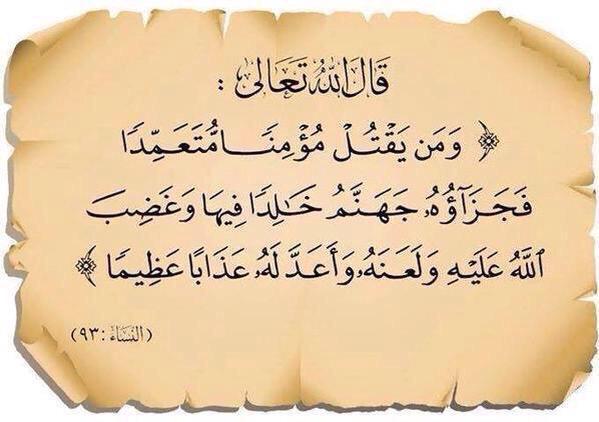 قَالَ اللهُ تَعَالَى :
﴿ وَمَن يَقْتُلْ مُؤْمِنًا مُّتَعَمِّدًا
فَجَزَآؤُهُۥ جَهَنَّمُ خَٰلِدًا فِيهَا وَغَضِبَ
ٱللَّهُ عَلَيْهِ وَلَعَنَهُۥ وَأَعَدَّ لَهُۥ عَذَابًا عَظِيمًا ﴾
(النساء : ٩٣)